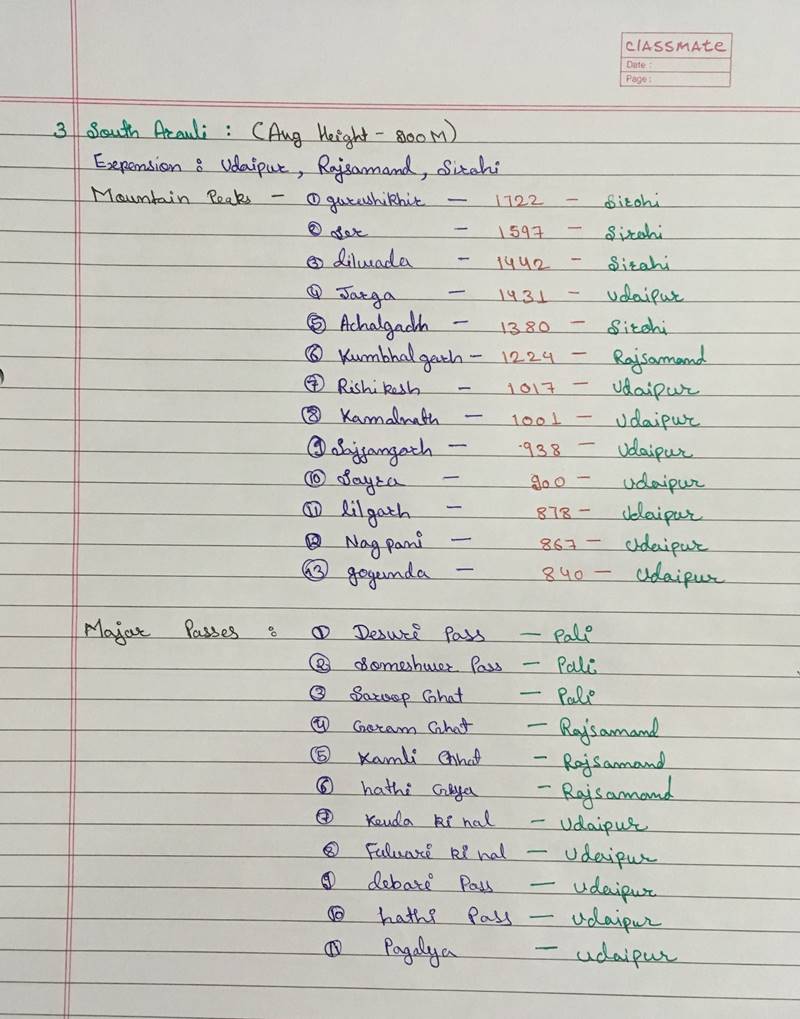 CLASSMATE
Date :
Page :
3 South Aravli : (Avg Height - 900 M)
Expension : Udaipur, Rajsamand, Sirohi
Mountain Peaks - ① gurushikhir - 1722 - Sirohi
② Ser - 1597 - Sirohi
③ dilwada - 1442 - Sirohi
④ Jarga - 1431 - Udaipur
⑤ Achalgadh - 1380 - Sirohi
⑥ Kumbhalgarh - 1224 - Rajsamand
⑦ Rishikesh - 1017 - Udaipur
⑧ Kamalnath - 1001 - Udaipur
⑨ Sajjangarh - 938 - Udaipur
⑩ Sayra - 900 - Udaipur
⑪ lilgarh - 878 - Udaipur
⑫ Nagpani - 867 - Udaipur
⑬ gogunda - 840 - Udaipur
Major Passes : ① Desuri Pass - Pali
② Someshwer Pass - Pali
③ Saroop Ghat - Pali
④ Goram Ghat - Rajsamand
⑤ Kamli Ghat - Rajsamand
⑥ hathi - Rajsamand
⑦ Kevda ki nal - Udaipur
⑧ Fulwari ki nal - Udaipur
⑨ debari Pass - Udaipur
⑩ hathi Pass - Udaipur
⑪ Pagalya - Udaipur